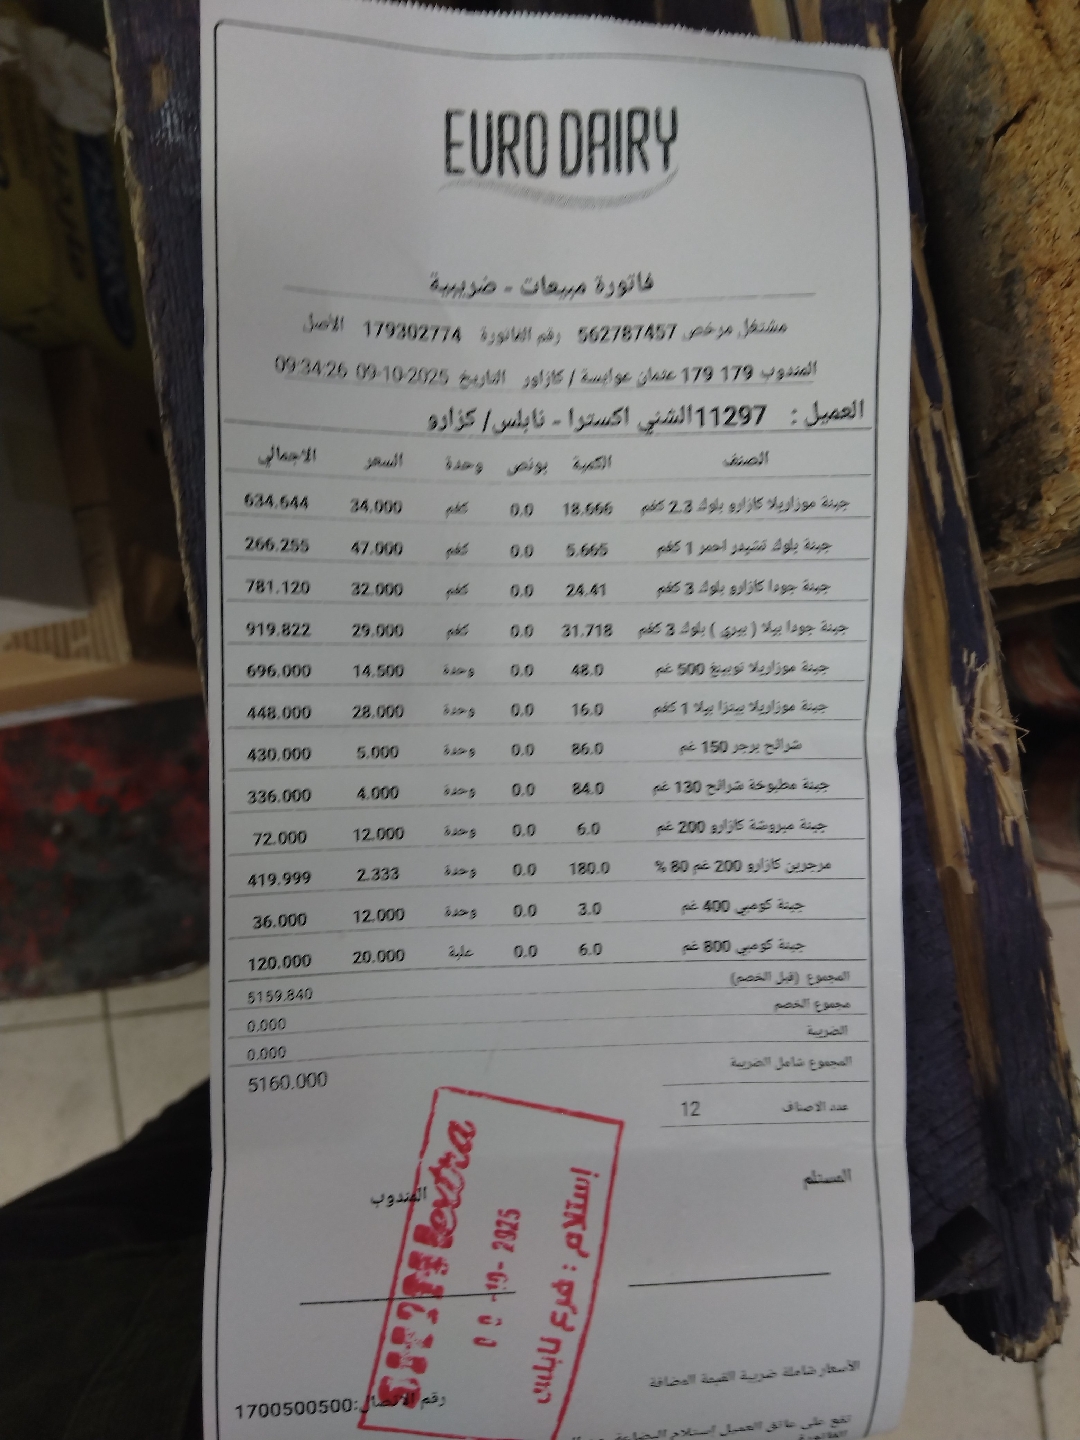 EURO DAIRY
فاتورة مبيعات - ضريبية
مشتغل مرخص 562787457 رقم الفاتورة 179302774 الأصل
المندوب 179 179 عثمان عوايسة / كازاور التاريخ 09-10-2025 09:34:26
العميل : 11297الشني اكسترا - نابلس/ كزارو
الصنف الكمية بونص وحدة السعر الاجمالي
جبنة موزاريلا كازارو بلوك 2.3 كغم 18.666 0.0 كغم 34.000 634.644
جبنة بلوك تشيدر احمر 1 كغم 5.665 0.0 كغم 47.000 266.255
جبنة جودا كازارو بلوك 3 كغم 24.41 0.0 كغم 32.000 781.120
جبنة جودا بيلا ( بيري ) بلوك 3 كغم 31.718 0.0 كغم 29.000 919.822
جبنة موزاريلا توبينغ 500 غم 48.0 0.0 وحدة 14.500 696.000
جبنة موزاريلا بيتزا بيلا 1 كغم 16.0 0.0 وحدة 28.000 448.000
شرائح برجر 150 غم 86.0 0.0 وحدة 5.000 430.000
جبنة مطبوخة شرائح 130 غم 84.0 0.0 وحدة 4.000 336.000
جبنة مبروشة كازارو 200 غم 6.0 0.0 وحدة 12.000 72.000
مرجرين كازارو 200 غم 80 % 180.0 0.0 وحدة 2.333 419.999
جبنة كومبي 400 غم 3.0 0.0 وحدة 12.000 36.000
جبنة كومبي 800 غم 6.0 0.0 علبة 20.000 120.000
المجموع (قبل الخصم) 5159.840
مجموع الخصم 0.000
الضريبة 0.000
المجموع شامل الضريبة 5160.000
عدد الاصناف 12
المستلم المندوب
extra
-10- 2025
إستلام : فرع نابلس
الأسعار شاملة ضريبة القيمة المضافة
رقم الاتصال:1700500500
تقع على عاتق العميل إستلام البضاعة
الفاتورة